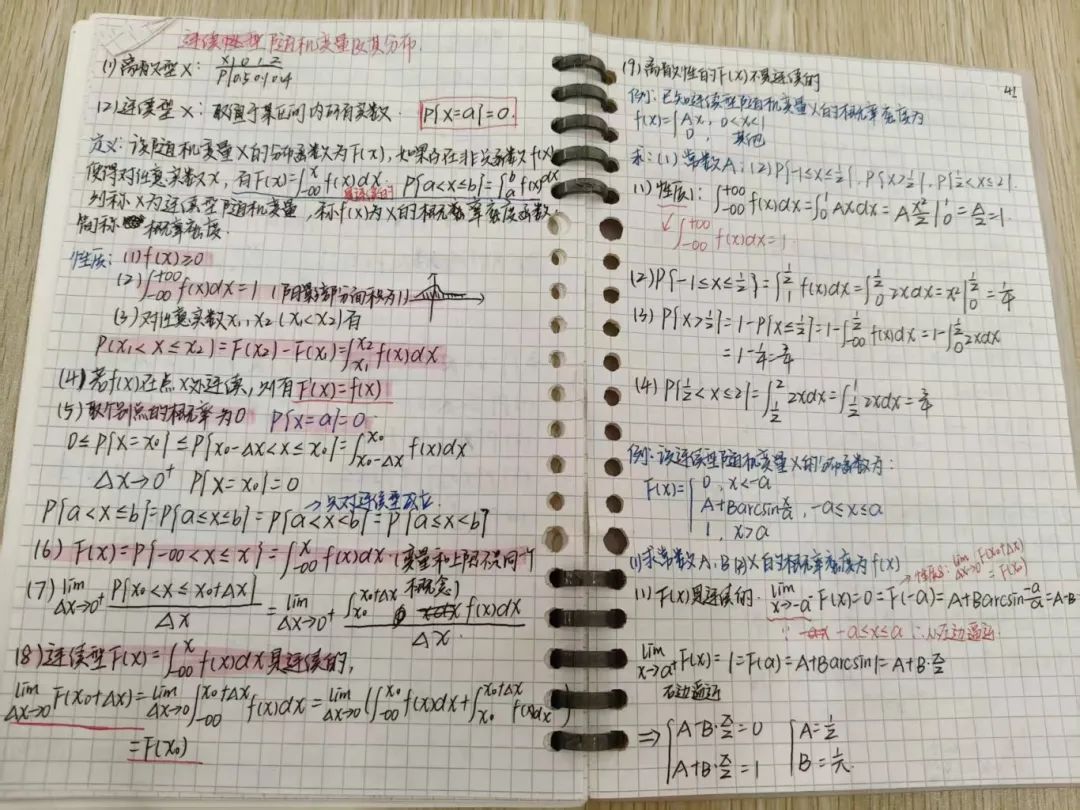 连续性型随机变量及其分布.
(1) 离散型 X: X|0 1 2
P|0.5 0.1 0.4
(2) 连续型 X: 取值于某区间内所有实数. P{X=a}=0.
定义: 设随机变量X的分布函数为F(x), 如果存在非负函数f(x)
使得对任意实数x, 有F(x)=∫_{-∞}^{x} f(x)dx. P{a<x≤b}=∫_a^b f(x)dx
是连续的
则称X为连续型随机变量, 称f(x)为X的概率密度函数,
简称概率密度.
性质: (1) f(x)≥0
(2) ∫_{-∞}^{+∞} f(x)dx=1 (阴影部分面积为1)
(3) 对任意实数x₁, x₂ (x₁<x₂)有
P(x₁<X≤x₂)=F(x₂)-F(x₁)=∫_{x₁}^{x₂} f(x)dx
(4) 若f(x)在点x处连续, 则有F'(x)=f(x)
(5) 取个别点的概率为0 P{X=a}=0.
0≤P{X=x₀}≤P{x₀-Δx<x≤x₀}=∫_{x₀-Δx}^{x₀} f(x)dx
Δx→0⁺ P{X=x₀}=0
→只对连续型成立.
P{a<x≤b}=P{a≤x≤b}=P{a<x<b}=P{a≤x<b}
(6) F(x)=P{-∞<X≤x}=∫_{-∞}^{x} f(x)dx (变量和上限不是同一个
概念)
(7) lim_{Δx→0⁺} P{x₀<X≤x₀+Δx}/Δx = lim_{Δx→0⁺} ∫_{x₀}^{x₀+Δx} f(x)dx/Δx.
(8) 连续型F(x)=∫_{-∞}^{x} f(x)dx是连续的,
lim_{Δx→0} F(x₀+Δx)=lim_{Δx→0} ∫_{-∞}^{x₀+Δx} f(x)dx=lim_{Δx→0} (∫_{-∞}^{x₀} f(x)dx+∫_{x₀}^{x₀+Δx} f(x)dx)
=F(x₀)
41
(9) 离散性的F(x)不是连续的
例: 已知连续型随机变量X的概率密度为
f(x)={Ax, 0<x<1
0, 其他
求: (1) 常数A; (2) P{-1≤x≤1/2}, P{x>1/2}, P{1/2<x≤2}.
(1) 性质1: ∫_{-∞}^{+∞} f(x)dx=∫_0^1 Axdx=A x²/2|_0^1=A/2=1.
∫_{-∞}^{+∞} f(x)dx=1
(2) P{-1≤x≤1/2}=∫_{-1}^{1/2} f(x)dx=∫_0^{1/2} 2xdx=x²|_0^{1/2}=1/4
(3) P{x>1/2}=1-P{x≤1/2}=1-∫_{-∞}^{1/2} f(x)dx=1-∫_0^{1/2} 2xdx
=1-1/4=3/4
(4) P{1/2<x≤2}=∫_{1/2}^{2} 2xdx=∫_{1/2}^{1} 2xdx=3/4
例: 设连续型随机变量X的分布函数为:
F(x)={0, x<-a
A+Barcsin x/a, -a≤x≤a
1, x>a
(1) 求常数A, B (2) X的概率密度为f(x)
→性质8: lim_{Δx→0} F(x₀+Δx)
=F(x₀)
(1) F(x)是连续的. lim_{x→-a} F(x)=0=F(-a)=A+Barcsin -a/a=A-B·
∵ -a≤x≤a ∴从左边逼近
lim_{x→a⁺} F(x)=1=F(a)=A+Barcsin1=A+B·π/2
右边逼近
⇒{A-B·π/2=0 {A=1/2
A+B·π/2=1 B=1/π.